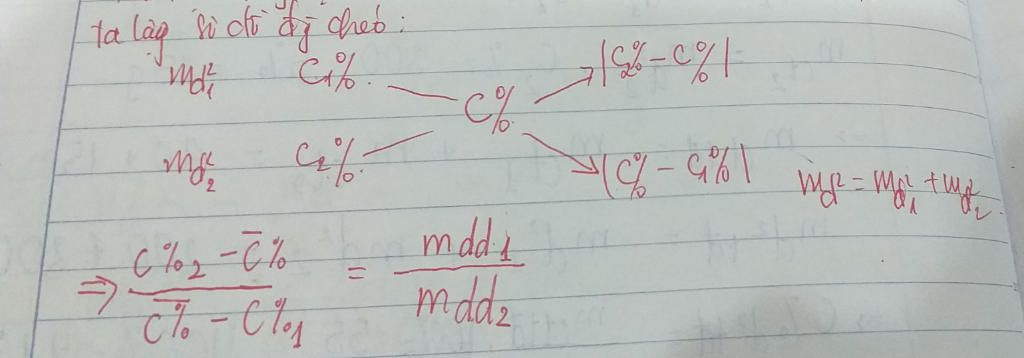 ta lập sơ đồ đg chéo:
md²₁ C₁% |C₂% - C%|
C%
md²₂ C₂% |C% - C₁%| md² = md²₁ + md²₂
⇒ (C%₂ - C̄%) / (C̄% - C%₁) = mdd₁ / mdd₂